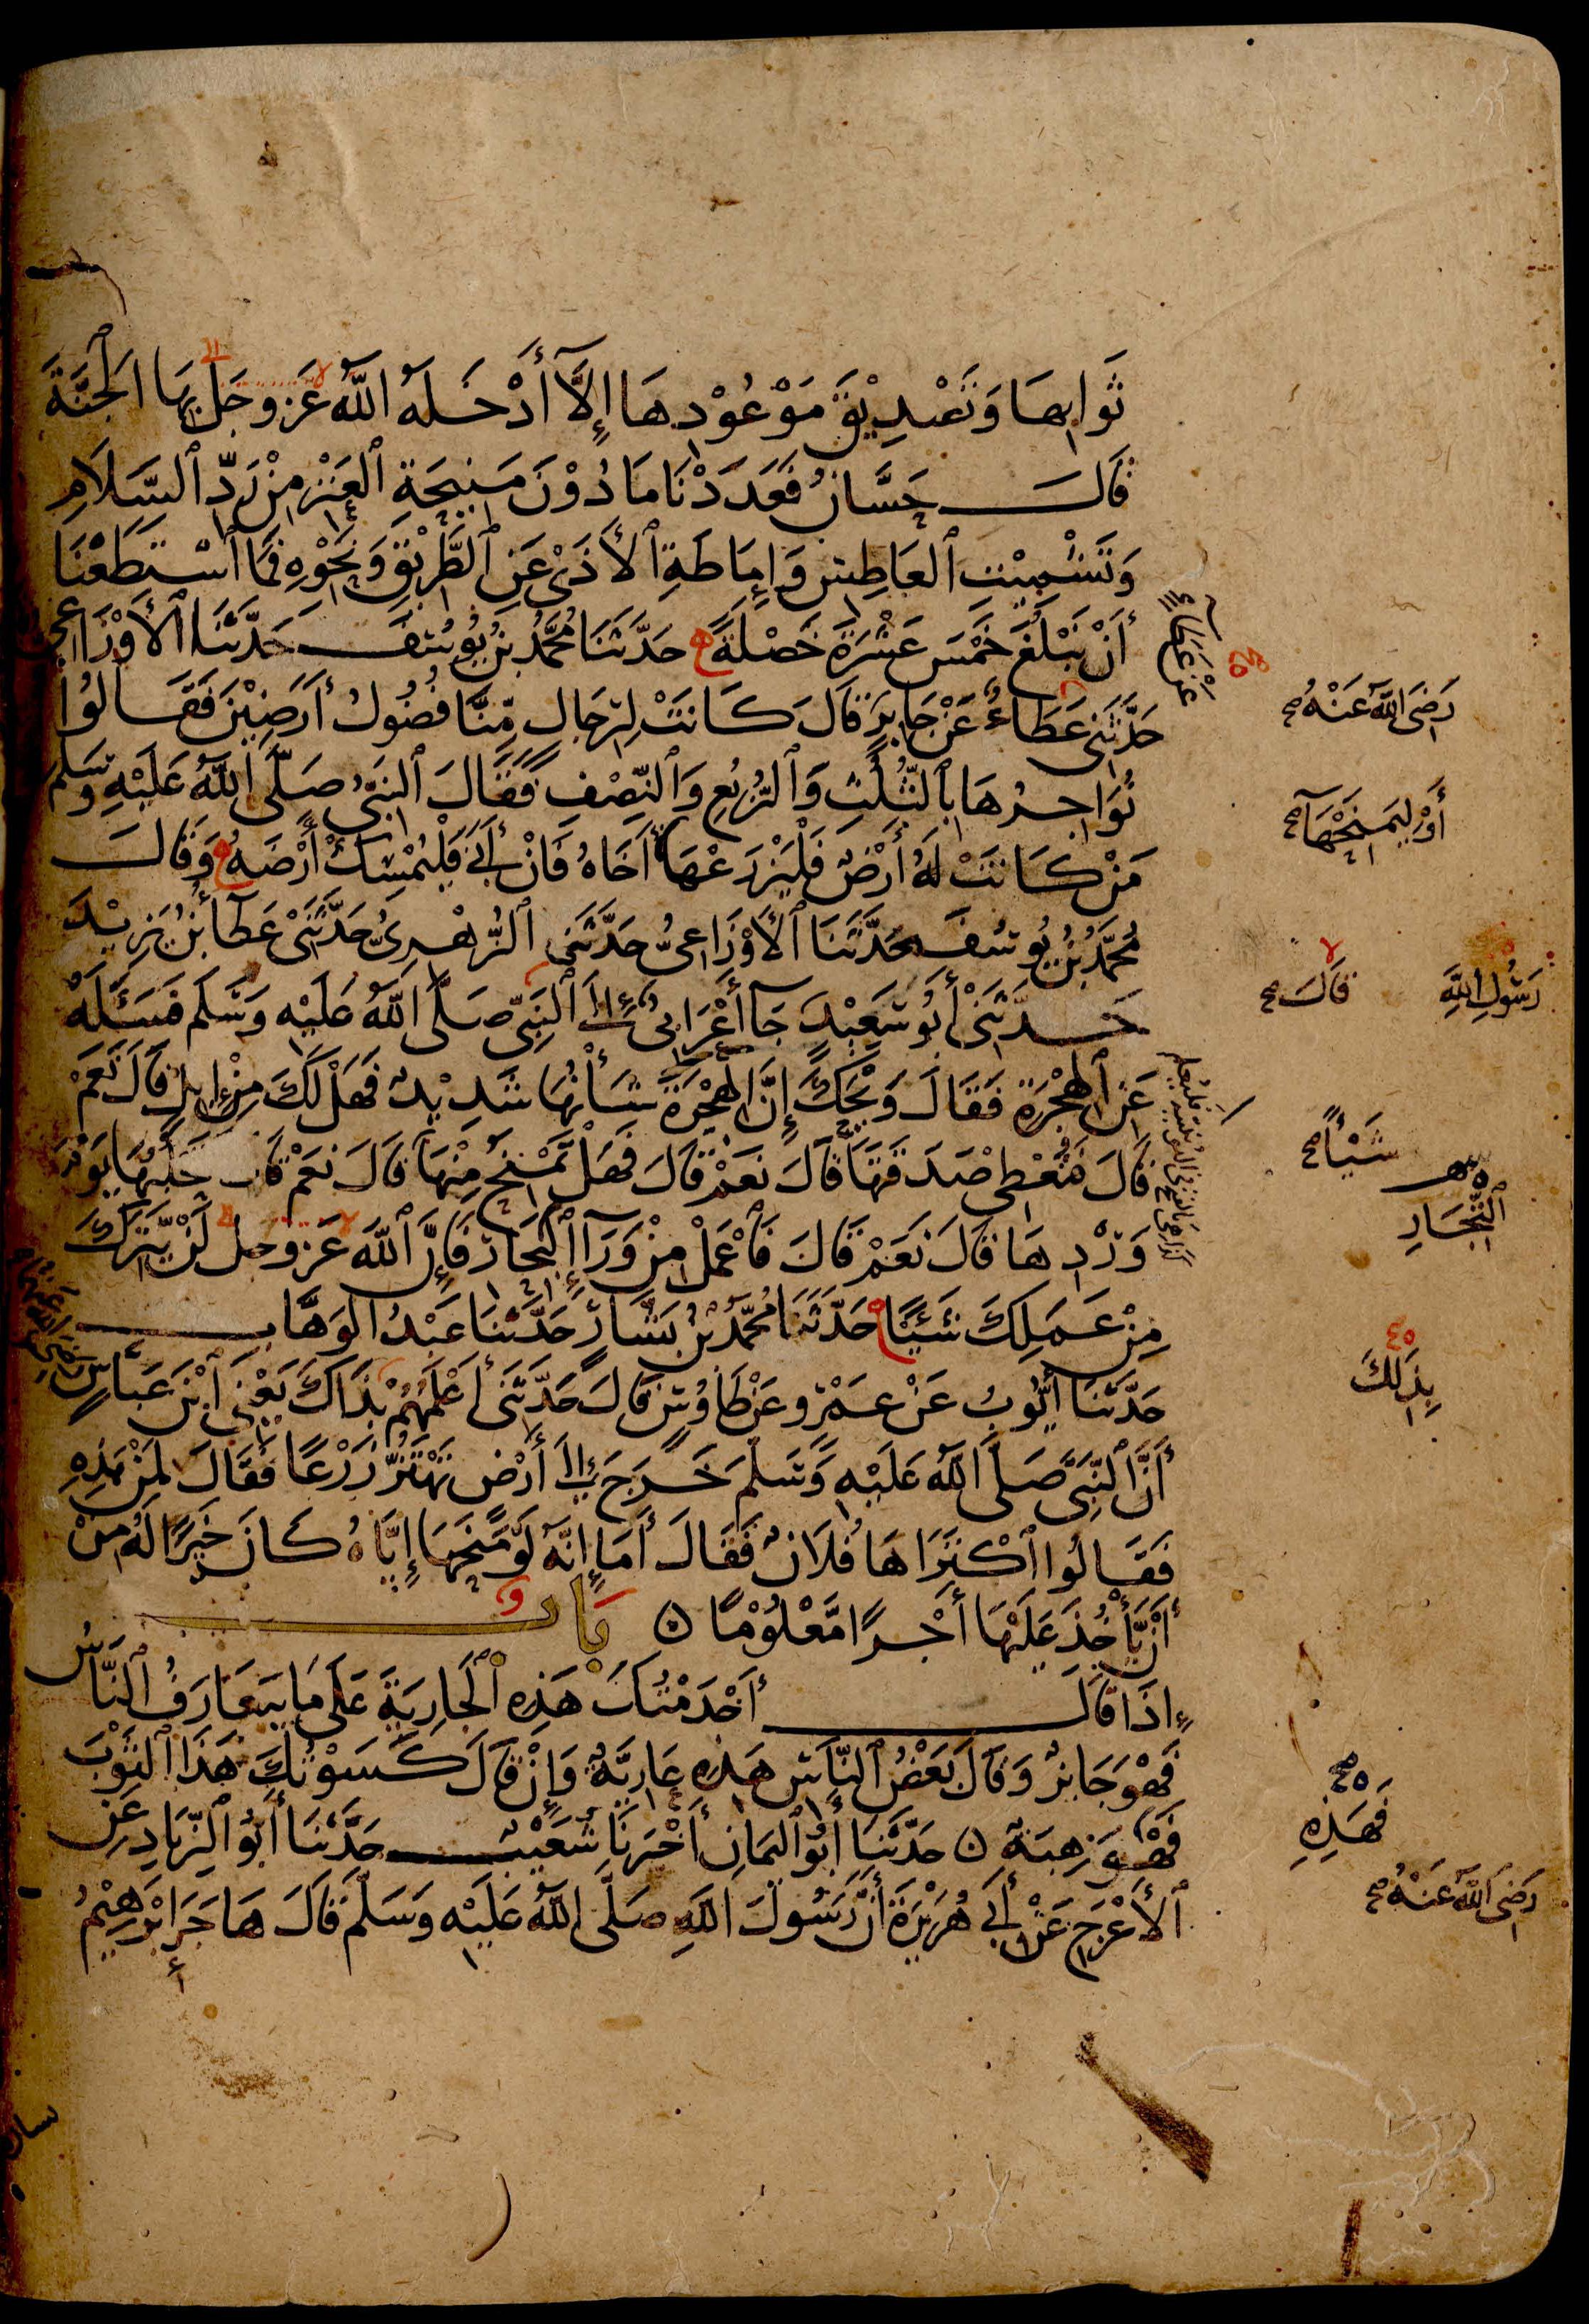 ثَوَابِهَا وَتَصْدِيْقَ مَوْعُوْدِهَا إِلَّا أَدْخَلَهُ اللَّهُ عَزَّ وَجَلَّ بِهَا الْجَنَّةَ
قَالَ حَسَّانُ فَعَدَدْنَا مَا دُوْنَ مَنِيحَةِ الْعَنْزِ مِنْ رَدِّ السَّلَامِ
وَتَشْمِيْتِ الْعَاطِسِ وَإِمَاطَةِ الْأَذَى عَنِ الطَّرِيْقِ وَنَحْوِهِ فَمَا اسْتَطَعْنَا
أَنْ نَبْلُغَ خَمْسَ عَشْرَةَ خَصْلَةً حَدَّثَنَا مُحَمَّدُ بْنُ يُوسُفَ حَدَّثَنَا الْأَوْزَاعِيُّ
حَدَّثَنِي عَطَاءٌ عَنْ جَابِرٍ قَالَ كَانَتْ لِرِجَالٍ مِّنَّا فُضُولُ أَرَضِيْنَ فَقَالُوا
نُوَاجِرُهَا بِالثُّلُثِ وَالرُّبُعِ وَالنِّصْفِ فَقَالَ النَّبِيُّ صَلَّى اللَّهُ عَلَيْهِ وَسَلَّمَ
مَنْ كَانَتْ لَهُ أَرْضٌ فَلْيَزْرَعْهَا أَخَاهُ فَإِنْ أَبَى فَلْيُمْسِكْ أَرْضَهُ وَقَالَ
مُحَمَّدُ بْنُ يُوسُفَ حَدَّثَنَا الْأَوْزَاعِيُّ حَدَّثَنِي الزُّهْرِيُّ حَدَّثَنِي عَطَاءُ بْنُ يَزِيْدَ
حَدَّثَنِي أَبُو سَعِيْدٍ جَآ أَعْرَابِيٌّ إِلَى النَّبِيِّ صَلَّى اللَّهُ عَلَيْهِ وَسَلَّمَ فَسَئَلَهُ
عَنِ الْهِجْرَةِ فَقَالَ وَيْحَكَ إِنَّ الْهِجْرَةَ شَأْنُهَا شَدِيْدٌ فَهَلْ لَكَ مِنْ إِبِلٍ قَالَ نَعَمْ
قَالَ فَتُعْطِي صَدَقَتَهَا قَالَ نَعَمْ قَالَ فَهَلْ تَمْنَحُ مِنْهَا قَالَ نَعَمْ قَالَ فَتَحْلُبُهَا يَوْمَ
وِرْدِهَا قَالَ نَعَمْ قَالَ فَاعْمَلْ مِنْ وَرَآءِ الْبِحَارِ فَإِنَّ اللَّهَ عَزَّ وَجَلَّ لَنْ يَّتِرَكَ
مِنْ عَمَلِكَ شَيْئًا حَدَّثَنَا مُحَمَّدُ بْنُ بَشَّارٍ حَدَّثَنَا عَبْدُ الْوَهَّابِ
حَدَّثَنَا أَيُّوبُ عَنْ عَمْرٍو عَنْ طَاوُسٍ قَالَ حَدَّثَنِي أَعْلَمُهُمْ بِذَاكَ يَعْنِي ابْنَ عَبَّاسٍ
أَنَّ النَّبِيَّ صَلَّى اللَّهُ عَلَيْهِ وَسَلَّمَ خَرَجَ إِلَى أَرْضٍ تَهْتَزُّ زَرْعًا فَقَالَ لِمَنْ هَذِهِ
فَقَالُوا اكْتَرَاهَا فُلَانٌ فَقَالَ أَمَا إِنَّهُ لَوْ مَنَحَهَا إِيَّاهُ كَانَ خَيْرًا لَهُ مِنْ
أَنْ يَّأْخُذَ عَلَيْهَا أَجْرًا مَّعْلُوْمًا بَابٌ
إِذَا قَالَ أَخْدَمْتُكَ هَذِهِ الْجَارِيَةَ عَلَى مَا يَتَعَارَفُ النَّاسُ
فَهْوَ جَائِزٌ وَقَالَ بَعْضُ النَّاسِ هَذِهِ عَارِيَّةٌ وَإِنْ قَالَ كَسَوْتُكَ هَذَا الثَّوْبَ
فَهْوَ هِبَةٌ حَدَّثَنَا أَبُو الْيَمَانِ أَخْبَرَنَا شُعَيْبٌ حَدَّثَنَا أَبُو الزِّنَادِ عَنِ
الْأَعْرَجِ عَنْ أَبِي هُرَيْرَةَ أَنَّ رَسُولَ اللَّهِ صَلَّى اللَّهُ عَلَيْهِ وَسَلَّمَ قَالَ هَاجَرَ إِبْرَهِيْمُ
عَنْ عَطَاءٍ
رَضِيَ اللَّهُ عَنْهُ صح
أَوْ لِيَمْنَحْهَا صح
رَسُولِ اللَّهِ قَالَ صح
شَيْئًا صح
التِّجَارِ
بِذَلِكَ
فَهَذِهِ
رَضِيَ اللَّهُ عَنْهُ صح